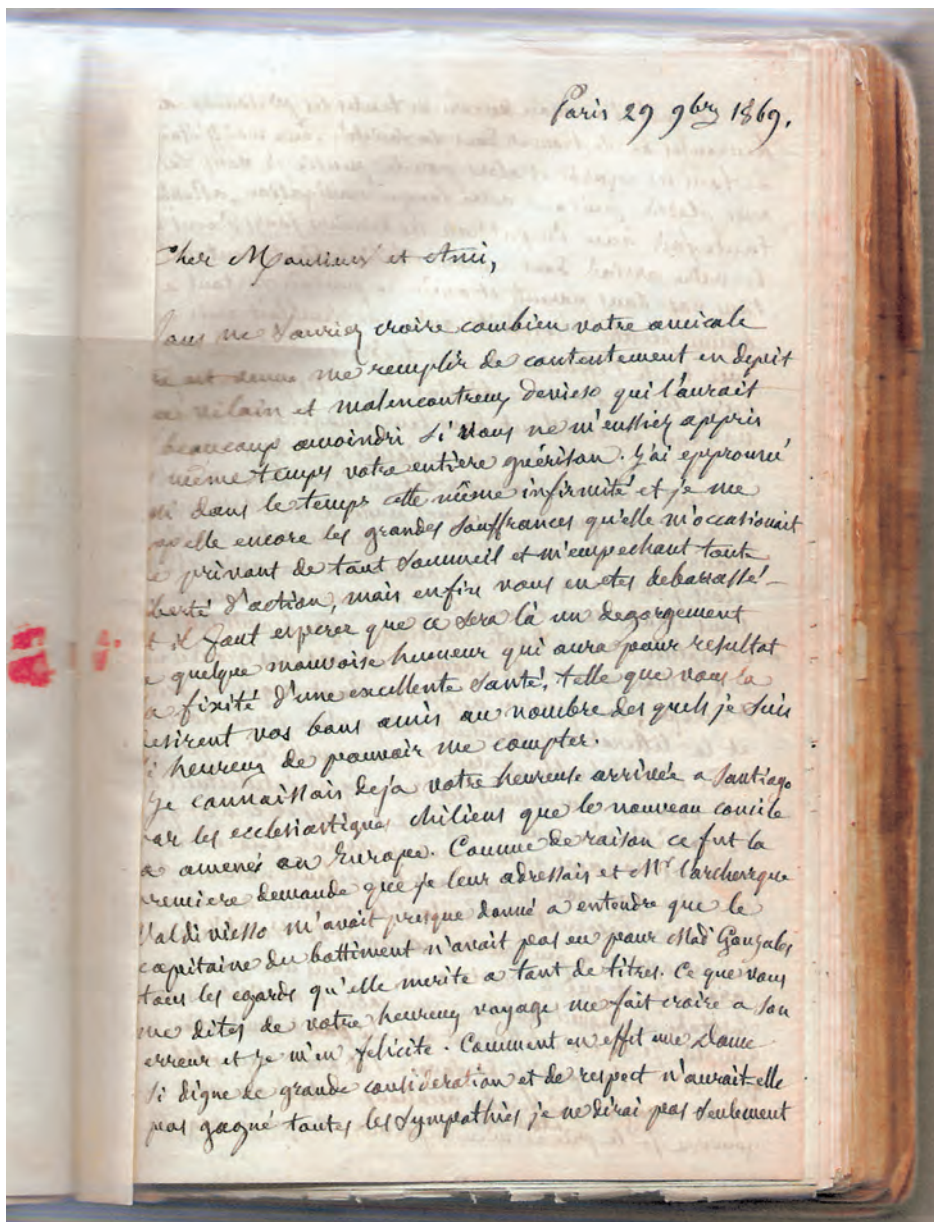 Paris 29 9bre 1869.
Cher Monsieur et Ami,
Vous ne sauriez croire combien votre amicale
est venue me remplir de contentement en depit
vilain et malencontreux devieso qui l'aurait
beaucoup amoindri si vous ne m'eussiez appris
même temps votre entiere guérison. J'ai epprouvé
dans le temps cette même infirmité et je me
appelle encore les grandes souffrances qu'elle m'occasionait
privant de tout sommeil et m'empechant toute
iberté d'action, mais enfin vous en etes debarassé
t il faut esperer que ce sera là un degorgement
e quelque mauvaise humeur qui aura pour resultat
a fixité d'une excellente santé, telle que vous la
desirent vos bons amis au nombre des quels je suis
si heureux de pouvoir me compter.
Je connaissais deja votre heureuse arrivée a Santiago
par les ecclesiastiques chiliens que le nouveau concile
a amenés en Europe. Comme de raison ce fut la
premiere demande que je leur adressais et Mr l'archeveque
Valdiviesso m'avait presque donné a entendre que le
capitaine du battiment n'avait pas eu pour Mad Gonzales
tous les egards qu'elle merite a tant de titres. Ce que vous
me dites de votre heureux voyage me fait croire a son
erreur et je m'en felicite. Comment en effet une Dame
si digne de grande consideration et de respect n'aurait-elle
pas gagné toutes les sympathies je ne dirai pas seulement